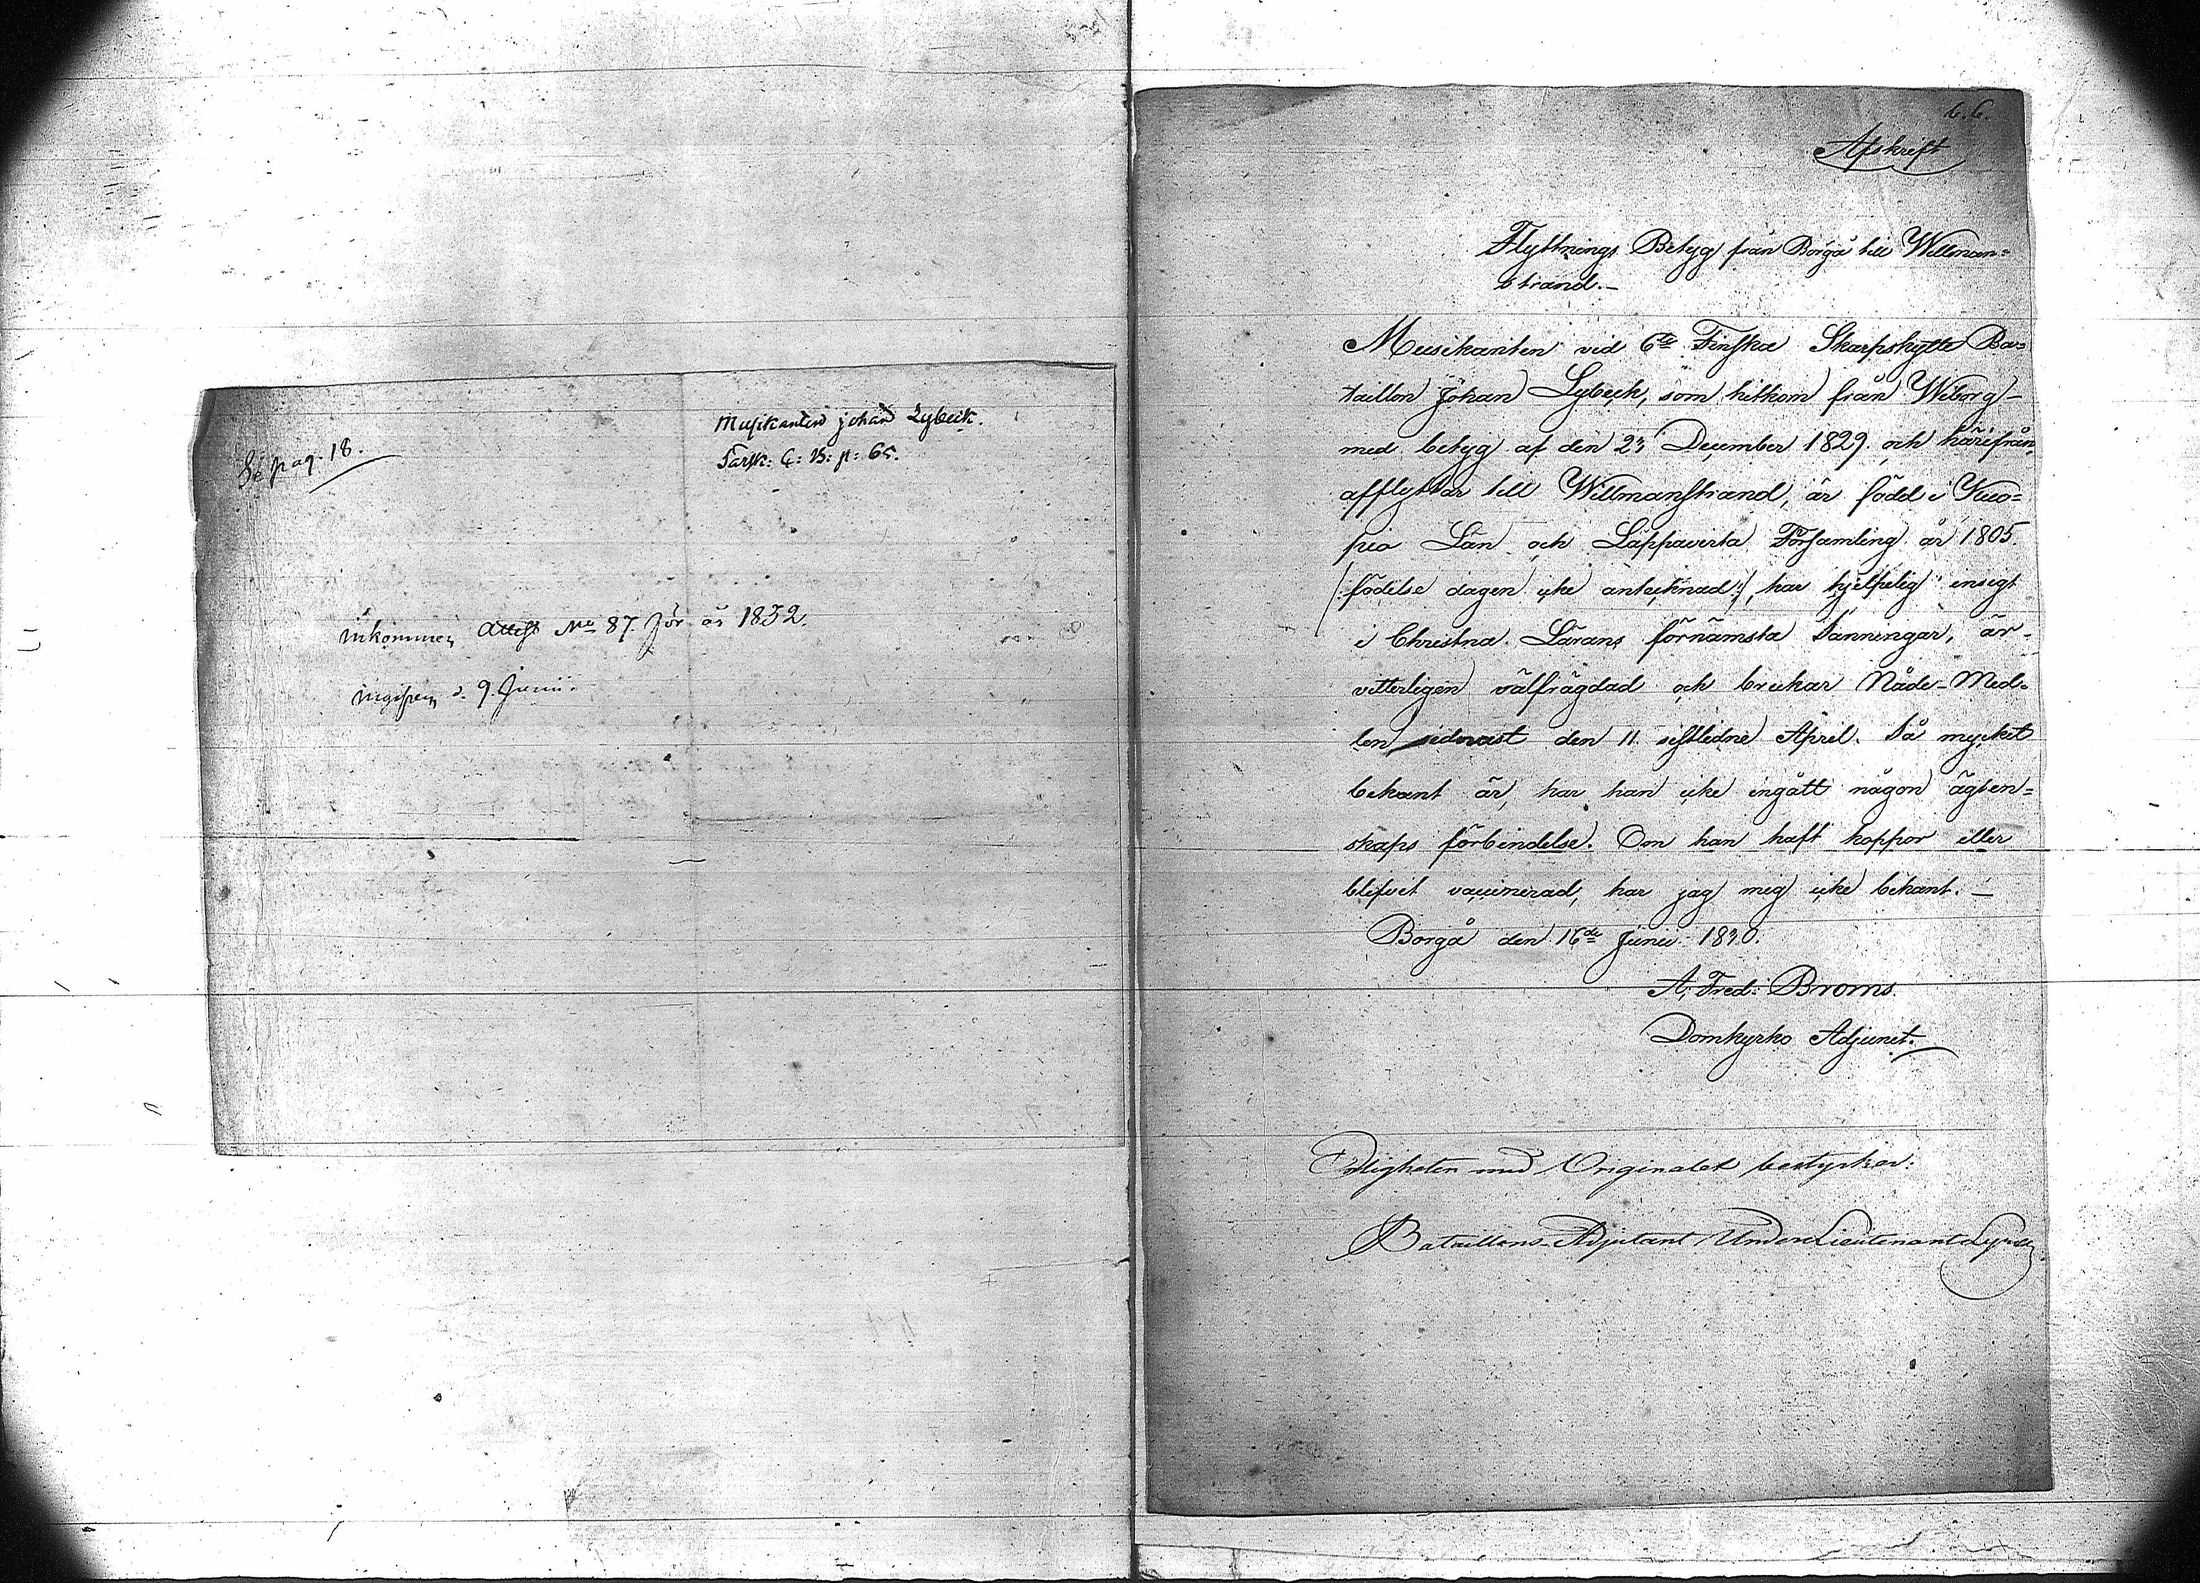 Se pag. 18.
Musikanten johan Lybeck.
Farsk: C: B: p: 65.
inkommen Attest No 87. för år 1832.
ingifven d. 9. Junii.
6.6.
Afskrift
Flyttnings Betyg från Borgå till Willman=
strand.—
Musikanten vid 6te Finska Skarpskytte Ba=
taillon Johan Lybeck, som hitkom från Wiborg
med betyg af den 23 December 1829 och härifrån
afflyttar till Willmanstrand, är född i Kuo=
pio Län och Läppavirta Församling år 1805.
/:födelse dagen icke antecknad:/, har hjelpelig insigt
i Christna Lärans förnämsta Sanningar, är
vitterligen välfrägdad och brukar Nåde-Med-
len sednast den 11 sistledne April. Så mycket
bekant är, har han icke ingått någon ägten=
skaps förbindelse. Om han haft koppor eller
blifvit vaccinerad, har jag mig icke bekant.—
Borgå den 16de Junii 1830.
A. Fred: Broms.
Domkyrko Adjunct.
Enligheten med Originalet bestyrker:
Bataillons-Adjutant UnderLieutenant